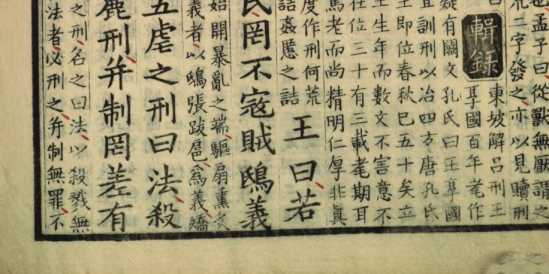 也孟子曰從獸無厭謂之
荒二字發之亦以見贖刑
輯錄
東坡解呂刑王
享國百年耄作
疑有闕文孔氏曰王享國
宜訓刑以治四方唐孔氏
王即位春秋巳五十矣立
王生年而數文不害意不
在位三十有三載耄期耳
焉老而尚精明仁厚非眞
度作刑何荒
詰姦慝之詰
王曰若
民罔不寇賊鴟義
始開暴亂之端驅扇熏炙
義者以鴟張跋扈爲義矯
五虐之刑曰法殺
麗刑并制罔差有
之刑名之曰法以殺戮無
法者必刑之并制無罪不